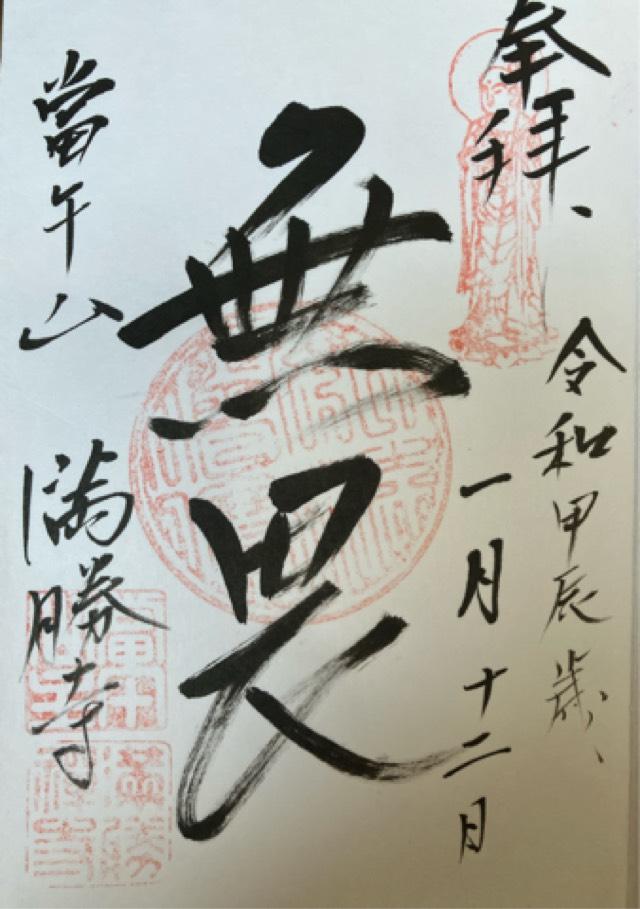 奉拝、
令和甲辰歳、
一月十二日
無畏
當午山
満勝寺